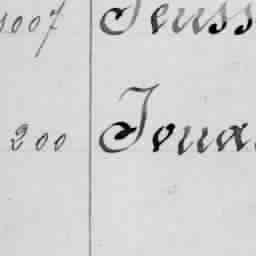 1007 Teuss
200 Toua